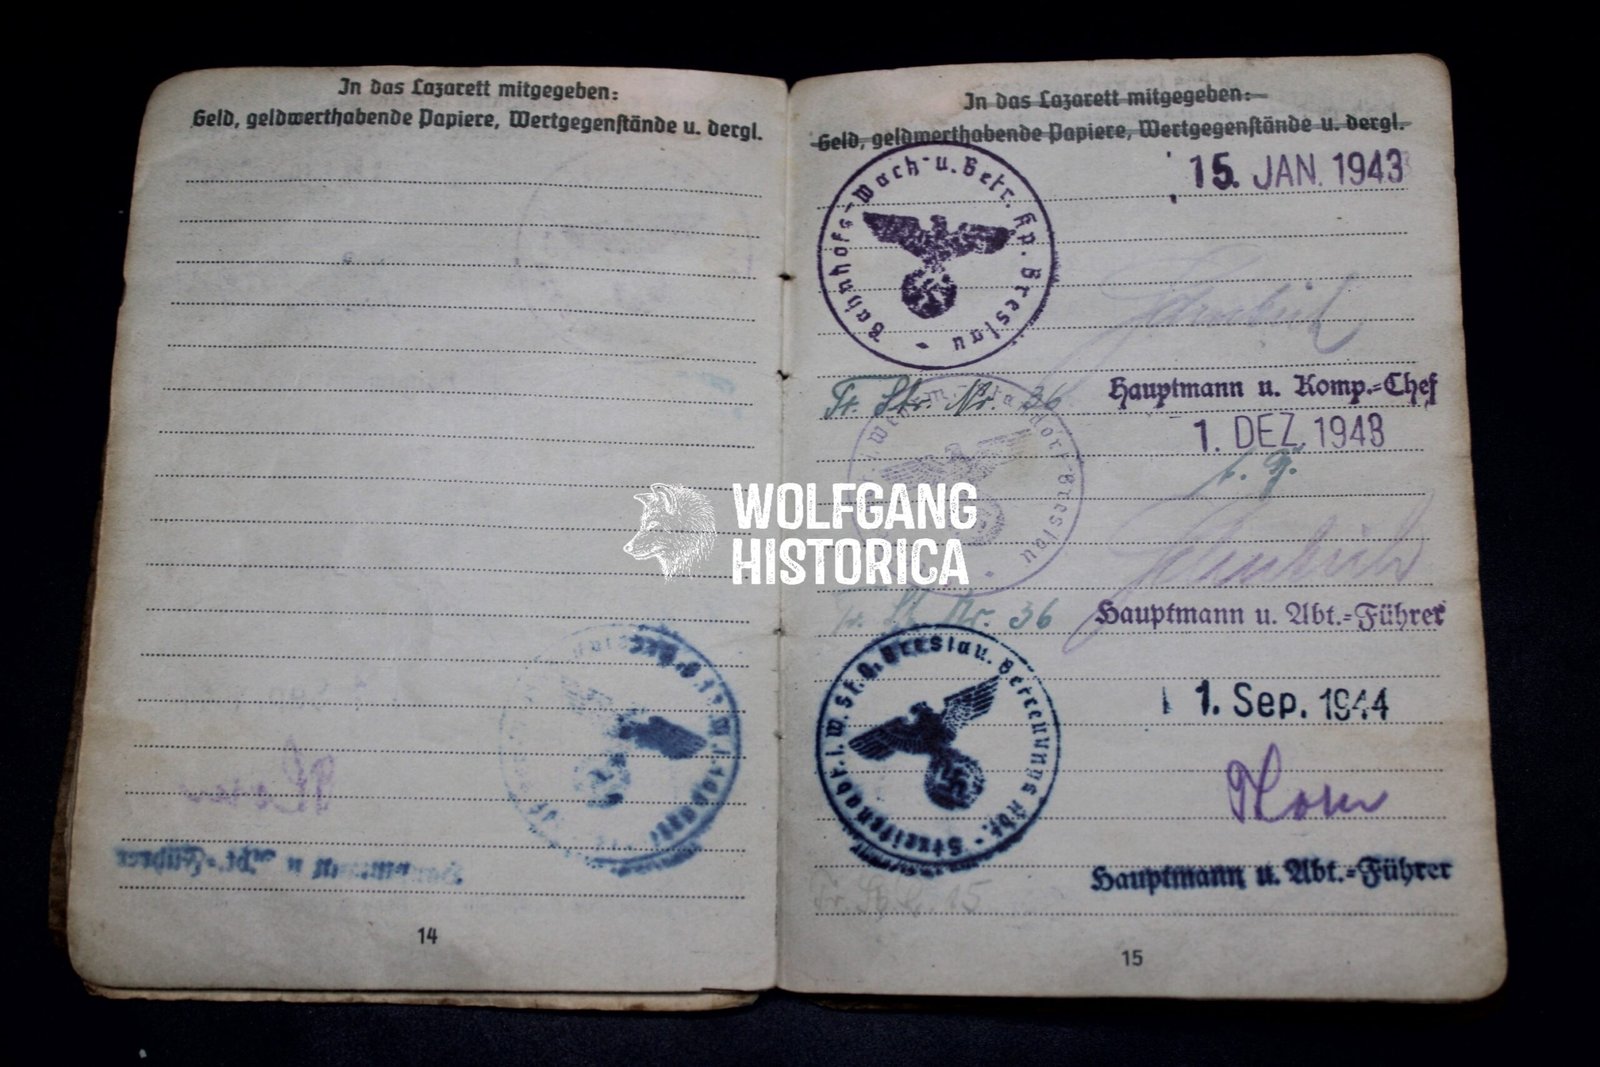 In das Lazarett mitgegeben:
Geld, geldwerthabende Papiere, Wertgegenstände u. dergl.
14
In das Lazarett mitgegeben:
Geld, geldwerthabende Papiere, Wertgegenstände u. dergl.
Bahnhofs-Wach- u. Betr. Kp. Breslau
15. JAN. 1943
Tr. Str. Nr. 36
Hauptmann u. Komp.-Chef
1. DEZ. 1943
Breslau
Nr. 36
Hauptmann u. Abt.-Führer
Streifenabt. i. W. St. O. Breslau. Betreuungs Abt.
1. Sep. 1944
Hauptmann u. Abt.-Führer
15
WOLFGANG
HISTORICA